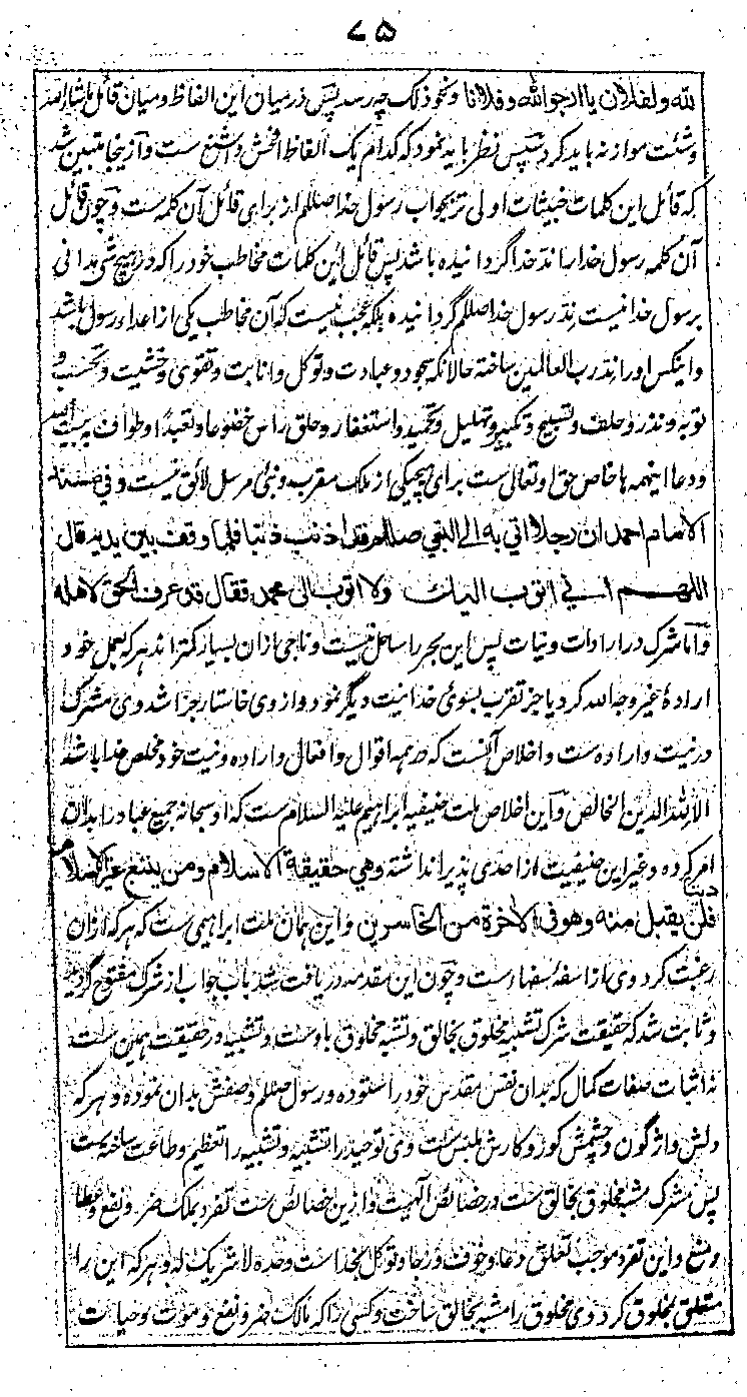 ۷۵
لله و لفلان یا ارجو الله و فلانا و نحو ذلک چه رسد پس در میان این الفاظ و میان قائل ما شاء الله
و شئت موازنه باید کرد سپس نظر باید نمود که کدام یک الفاظ افحش و اشنع ست و از ینجا متبین شد
که قائل این کلمات خبیثات اولی تر بجواب رسول خدا صللم از برای قائل آن کلمه ست و چون قائل
آن کلمه رسول خدا را ند خدا گردانیده باشد پس قائل این کلمات مخاطب خود را که در هیچ شی مدانی
برسول خدا نیست ند رسول خدا صللم گردانیده بلکه عجب نیست که آن مخاطب یکی از اعداء رسول باشد
و اینکس او را ند رب العالمین ساخته حالانکه سجود و عبادت و توکل و انابت و تقوی و خشیت و تحسب و
توبه و نذر و حلف و تسبیح و تکبیر و تهلیل و تحمید و استغفار و حلق راس خضوعا و تعبدا و طواف بیت الله
و دعا اینهمه ها خاص حق او تعالی ست برای هیچیکی از ملک مقرب و نبی مرسل لائق نیست و فی مسند
الامام احمد ان رجلا اتی به الی النبی صللم قد اذنب ذنبا فلما وقف بین یدیه قال
اللهم انی اتوب الیک ولا اتوب الی محمد فقال قد عرف الحق لاهله
و اما شرک در ارادات و نیات پس این بحر را ساحل نیست و ناجی ازان بسیار کمتر اند هر که بعمل خود
ارادهٔ غیر وجه الله کرد یا جز تقرب بسوی خدا نیت دیگر نمود و از وی خاستار جزا شد وی مشرک
در نیت و اراده ست و اخلاص آنست که در همه اقوال و افعال و اراده و نیت خود مخلص خدا باشد
الا لله الدین الخالص و این اخلاص ملت حنیفیه ابراهیم علیه السلام ست که او سبحانه جمیع عباد را بدان
امر کرده و غیر این حنیفیت از احدی پذیرا نداشته وهی حقیقة الاسلام ومن یبتغ غیر الاسلام دینا
فلن یقبل منه وهو فی الاخرة من الخاسرین و این همان ملت ابراهیمی ست که هر که ازان
رغبت کرد وی از اسفه سفهاء ست و چون این مقدمه دریافت شد باب جواب از شرک مفتوح گردید
و ثابت شد که حقیقت شرک تشبیه مخلوق بخالق و تشبه مخلوق باوست و تشبیه در حقیقت همین ست
نه اثبات صفات کمال که بدان نفس مقدس خود را ستوده و رسول صللم وصفش بدان نموده و هر که
دلش واژگون و چشمش کور و کارش ملبس ست وی توحید را تشبیه و تشبیه را تعظیم و طاعت ساخته ست
پس مشرک مشبه مخلوق بخالق ست در خصائص الهیت و ازین خصائص ست تفرد بملک ضر و نفع و عطا
و منع و این تفرد موجب تعلق دعا و خوف و رجا و توکل بخدا ست وحده لا شریک له و هر که این را
متعلق بمخلوق کرد وی مخلوق را مشبه بخالق ساخت و کسی را که مالک ضر و نفع و موت و حیات